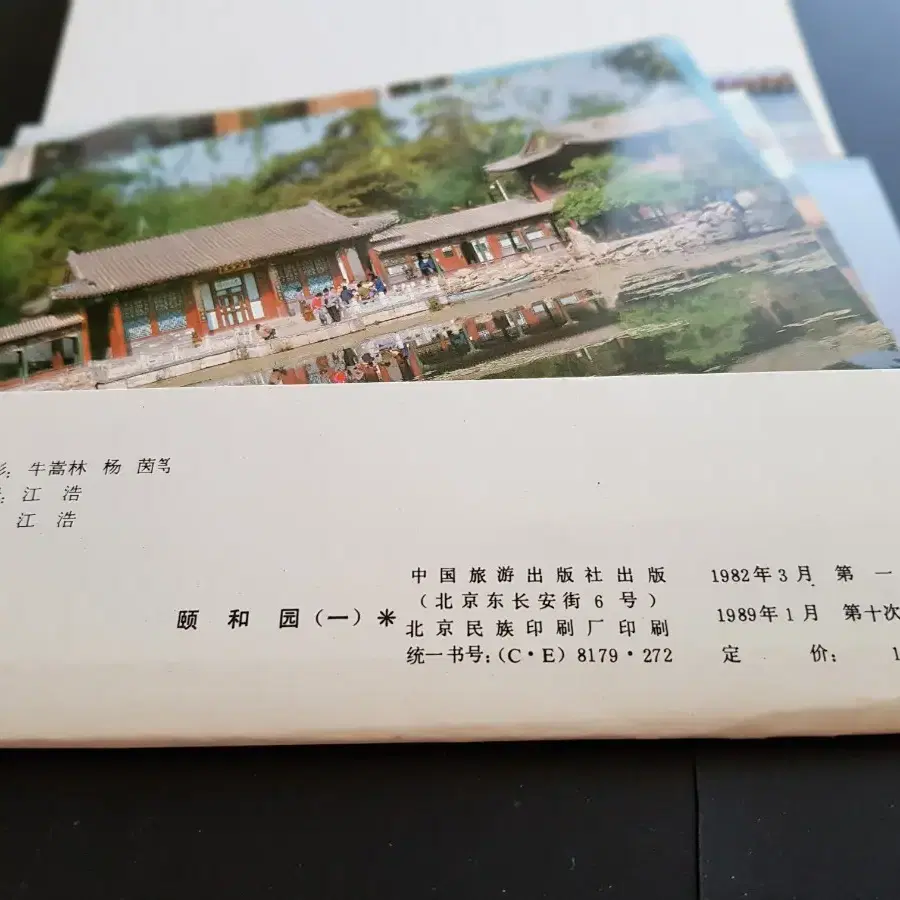 ：牛嵩林 杨 茵等
：江 浩
江 浩
颐 和 园（一）＊
中 国 旅 游 出 版 社 出 版
（北 京 东 长 安 街 6 号）
北 京 民 族 印 刷 厂 印 刷
统一书号：（C·E）8179·272
1982年3月 第 一
1989年1月 第十次
定 价： 1